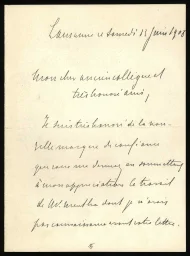 Lausanne ce samedi 13 juin 1908
Mon cher ancien collègue et
très honoré ami,
Je suis très honoré de la nou-
velle marque de confiance
que vous me donnez en soumettant
à mon appréciation le travail
de M. dont je n'avais
pas connaissance avant votre lettre.